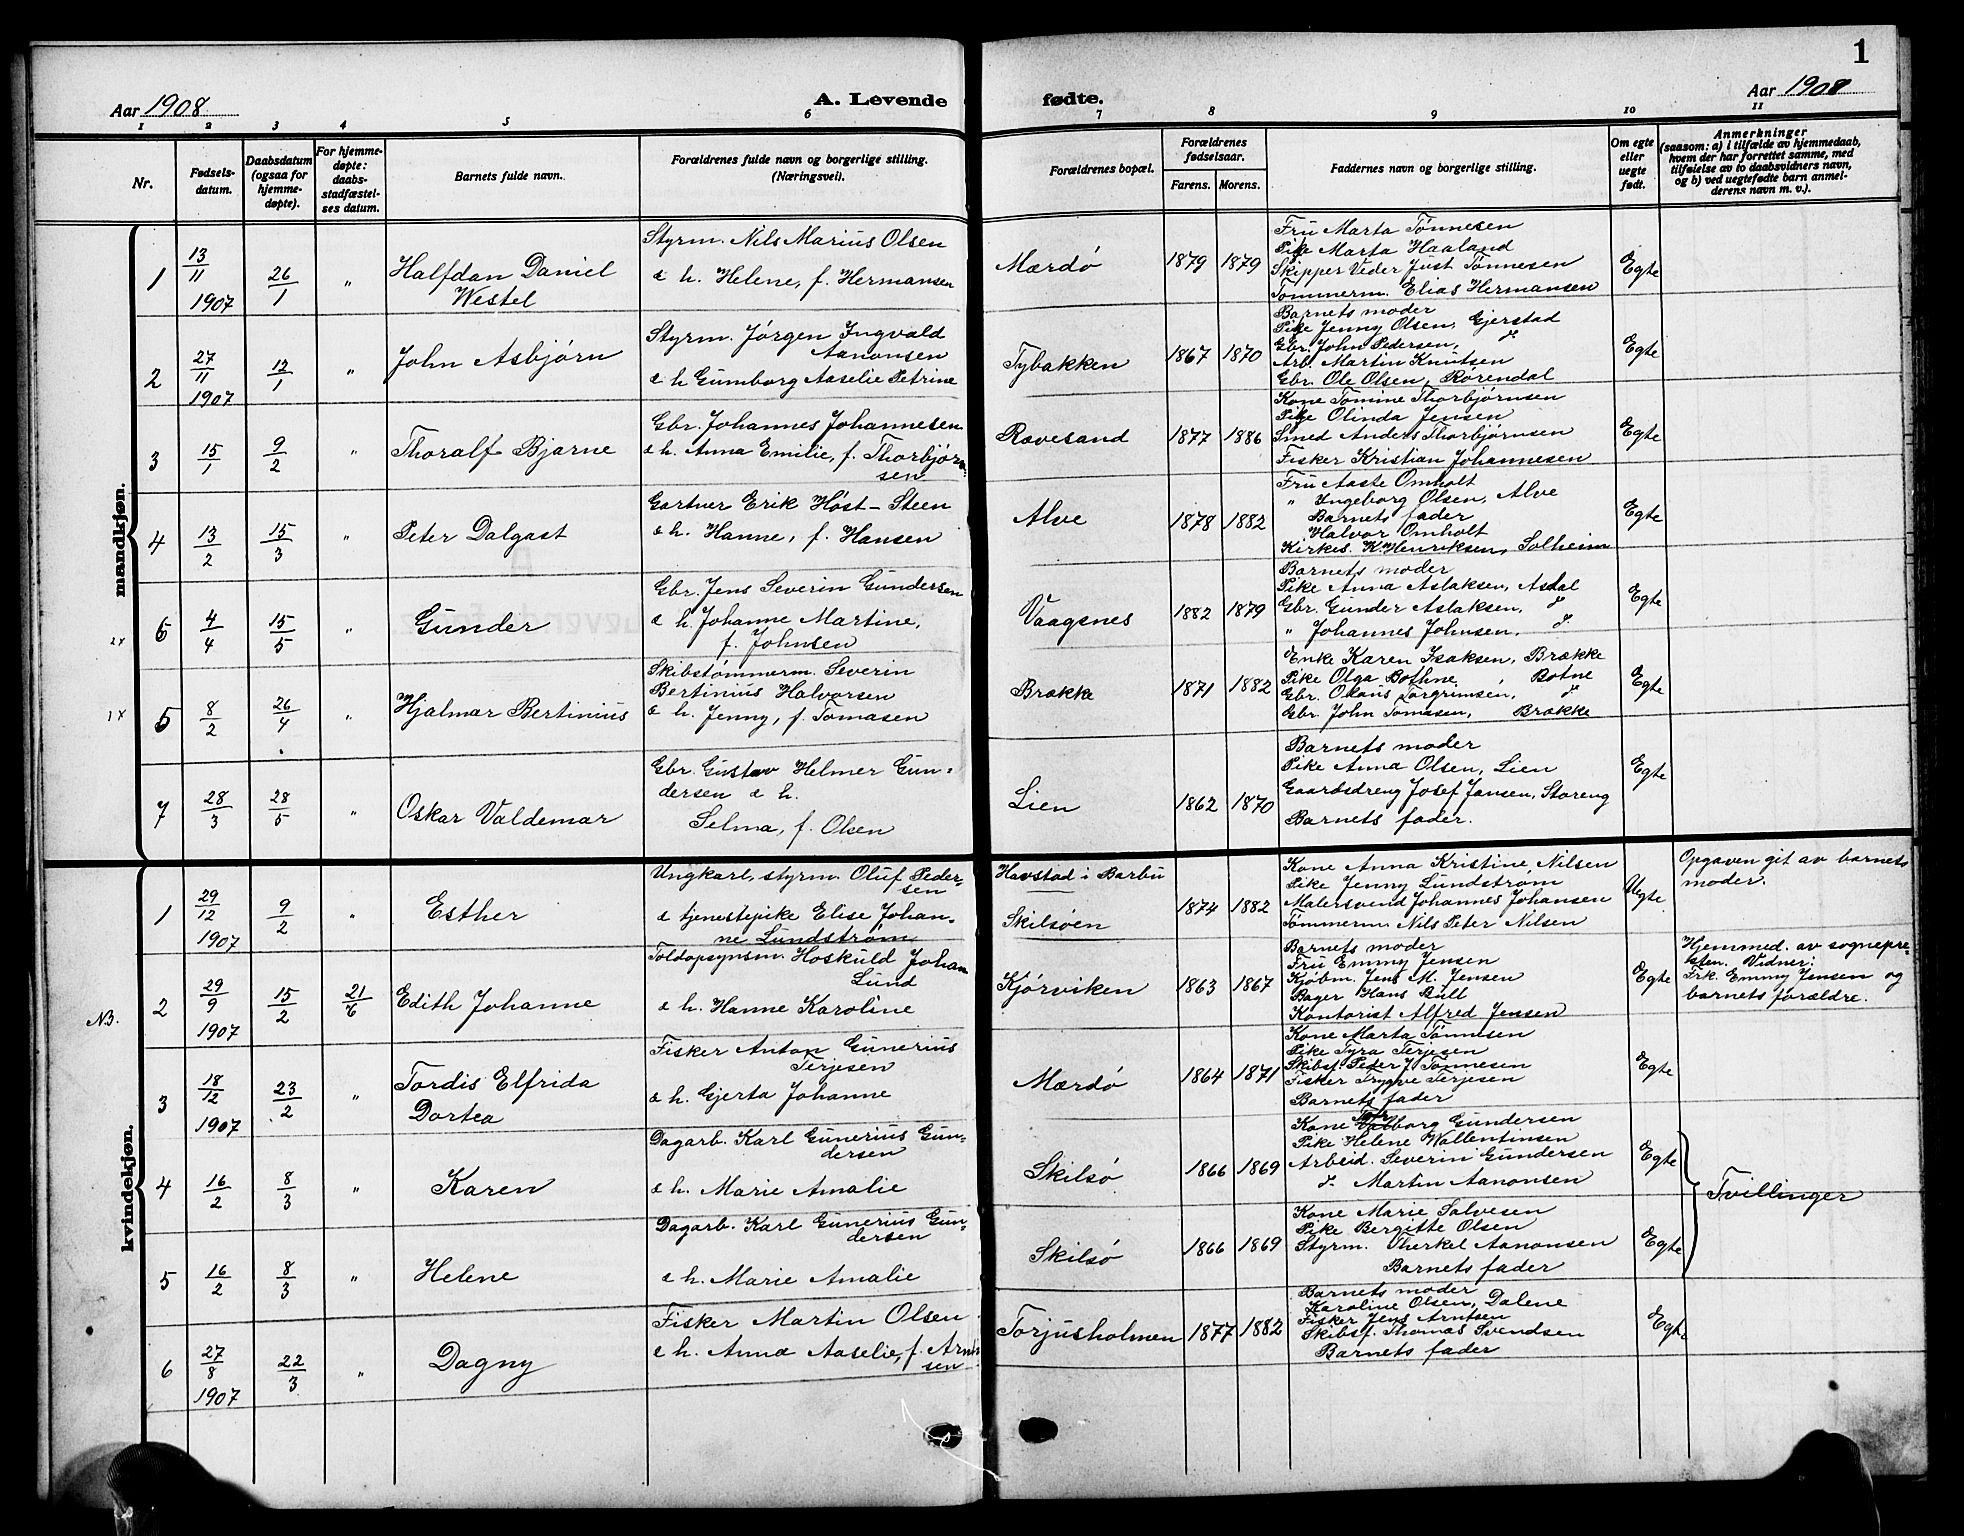 1
Aar 1908.
A. Levende
fødte.
Aar 1908
1 2 3 4 5 6 7 8 9 10 11
Nr.
Fødsels-
datum.
Daabsdatum
(ogsaa for
hjemme-
døpte).
For hjemme-
døpte:
daabs-
stadfæstel-
ses datum.
Barnets fulde navn.
Forældrenes fulde navn og borgerlige stilling.
(Næringsvei).
Forældrenes bopæl.
Forældrenes
fødselsaar.
Farens. Morens.
Faddernes navn og borgerlige stilling.
Om egte
eller
uegte
født.
Anmerkninger
(saasom: a) i tilfælde av hjemmedaab,
hvem der har forrettet samme, med
tilføielse av to daabsvidners navn,
og b) ved uegtefødte barn anmel-
derens navn m. v.).
mandkjøn.
1
13/11
1907
26/1
"
Halfdan Daniel
Westel
Styrm. Nils Marius Olsen
& h. Helene, f. Hermansen
Mærdø
1879 1879
Fru Marta Tønnesen
Pike Marta Haaland
Skipper Veder Just Tønnesen
Tømmerm. Elias Hermansen
Egte
2
27/11
1907
12/1
"
John Asbjørn
Styrm. Jørgen Ingvald
Aanonsen
& h Gumborg Aaselie Petrine
Tybakken
1867 1870
Barnets moder
Pike Jenny Olsen, Gjerstad
Gbr. John Pedersen, d.
Arb. Martin Knutsen
Gbr. Ole Olsen, Rørendal
Egte
3
15/1
9/2
"
Thoralf Bjarne
Gbr. Johannes Johannesen
& h. Anna Emilie, f. Thorbjørn-
sen
Rævesand
1877 1886
Kone Tomine Thorbjørnsen
Pike Olinda Jensen
Smed Anders Thorbjørnsen
Fisker Kristian Johannesen
Egte
4
13/2
15/3
"
Peter Dalgast
Gartner Erik Høst-Steen
& h. Hanne, f. Hansen
Alve
1878 1882
Fru Aaste Omholt
" Ingeborg Olsen, Alve
Barnets fader
Halvor Omholt
Kirkes. K. Henriksen, Solheim
Egte
2x
6
4/4
15/5
"
Gunder
Gbr. Jens Severin Gundersen
& h. Johanne Martine,
f. Johnsen
Vaagsnes
1882 1879
Barnets moder
Pike Anna Aslaksen, Asdal
Gbr. Gunder Aslaksen, d
" Johannes Johnsen, d.
Egte
1x
5
8/2
26/4
"
Hjalmar Bertinius
Skibstømmerm. Severin
Bertinius Halvorsen
& h. Jenny, f. Tomasen
Brække
1871 1882
Enke Karen Isaksen, Brække
Pike Olga Bothne, Botne
Gbr. Torgrimsen, d
Gbr. John Tomasen, Brække
Egte
7
28/3
28/5
"
Oskar Valdemar
Gbr. Gustav Helmer Gun-
dersen & h.
Selma, f. Olsen
Lien
1862 1870
Barnets moder
Pike Anna Olsen, Lien
Gaardsdreng Josef Jansen, Storeng
Barnets fader.
Egte
kvindekjøn.
1
29/12
1907
9/2
"
Esther
Ungkarl, styrm. Oluf Peder-
sen
& tjenestepike Elise Johan-
ne Lundstrøm
Havstad i Barbu
Skilsøen
1874 1882
Kone Anna Kristine Nilsen
Pike Jenny Lundstrøm
Malersvend Johannes Johansen
Tømmerm. Nils Peter Nilsen
Uegte
Opgaven git av barnets
moder.
NB.
2
29/9
1907
15/2
21/6
Edith Johanne
Toldopsynsm. Hoskuld Johan
Lund
& h. Hanne Karoline
Kjørviken
1863 1867
Barnets moder
Fru Emmy Jensen
Kjøbm. Jens M. Jensen
Bager Hans Bull
Kontorist Alfred Jensen
Egte
Hjemmed. av sognepre-
sten. Vidner:
Frk. Emmy Jensen og
barnets forældre.
3
18/12
1907
23/2
"
Tordis Elfrida
Dortea
Fisker Anton Gunerius
Terjesen
& h. Gjerta Johanne
Mærdø
1864 1871
Kone Marta Tønnesen
Pike Tyra Terjesen
Skibsf. Peder J. Tønnesen
Fisker Trygve Terjesen
Barnets fader
Egte
4
16/2
8/3
"
Karen
Dagarb. Karl Gunerius Gun-
dersen
& h. Marie Amalie
Skilsø
1866 1869
Kone Torborg Gundersen
Pike Helene Wallentinsen
Arbeid. Severin Gundersen
d. Martin Aanonsen
Egte
Tvillinger
5
16/2
8/3
"
Helene
Dagarb. Karl Gunerius Gun-
dersen
& h. Marie Amalie
Skilsø
1866 1869
Kone Marie Salvesen
Pike Bergitte Olsen
Styrm. Therkel Aanonsen
Barnets fader
Egte
6
27/8
1907
22/3
"
Dagny
Fisker Martin Olsen
& h. Anna Aaselie, f. Arnt-
sen
Torjusholmen
1877 1882
Barnets moder
Karoline Olsen, Dalene
Fisker Jens Arntsen
Skibsf. Thomas Svendsen
Barnets fader
Egte